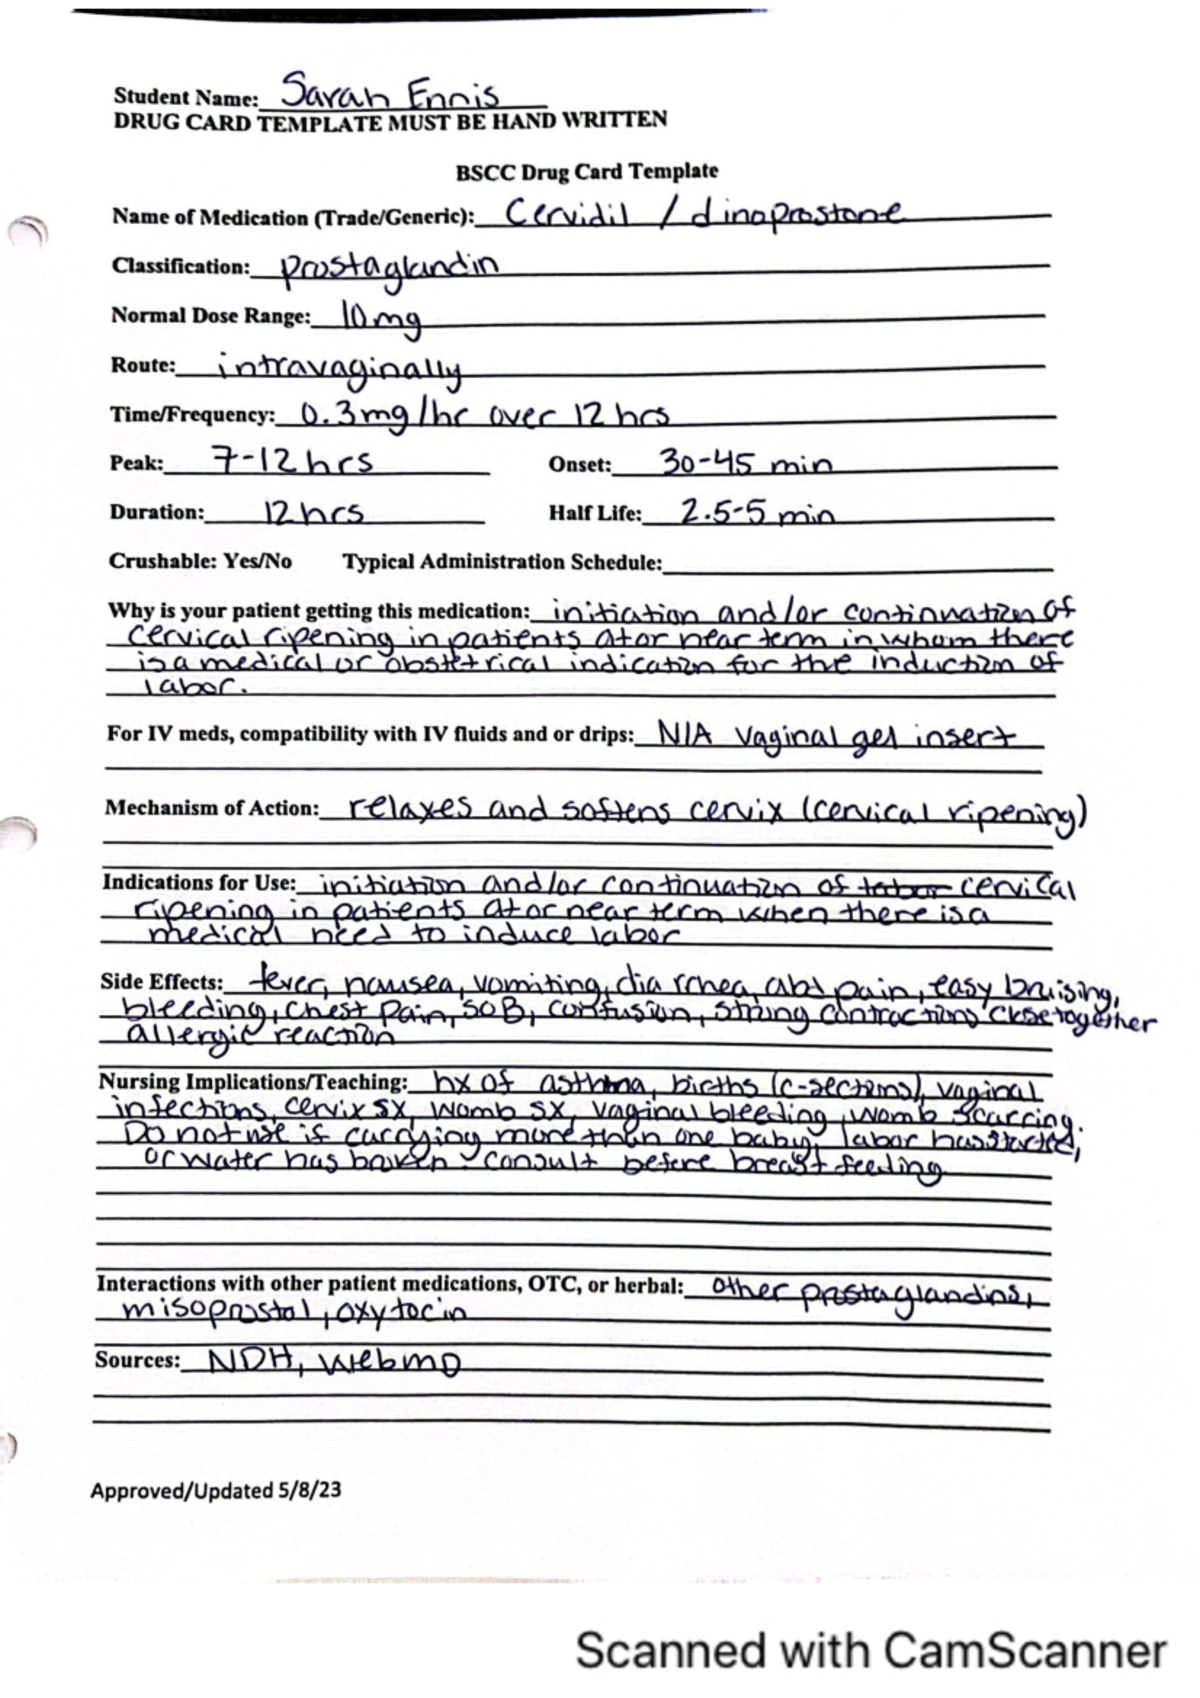 Student Name: Sarah Ennis
DRUG CARD TEMPLATE MUST BE HAND WRITTEN
BSCC Drug Card Template
Name of Medication (Trade/Generic): Cervidil / dinoprostone
Classification: prostaglandin
Normal Dose Range: 10mg
Route: intravaginally
Time/Frequency: 0.3mg/hr over 12 hrs
Peak: 7-12 hrs Onset: 30-45 min
Duration: 12 hrs Half Life: 2.5-5 min
Crushable: Yes/No Typical Administration Schedule:
Why is your patient getting this medication: initiation and/or continuation of
cervical ripening in patients at or near term in whom there
is a medical or obstetrical indication for the induction of
labor.
For IV meds, compatibility with IV fluids and or drips: N/A vaginal gel insert
Mechanism of Action: relaxes and softens cervix (cervical ripening)
Indications for Use: initiation and/or continuation of labor cervical
ripening in patients at or near term when there is a
medical need to induce labor
Side Effects: fever, nausea, vomiting, diarrhea, abd pain, easy bruising,
bleeding, chest pain, SOB, confusion, strong contractions close together
allergic reaction
Nursing Implications/Teaching: hx of asthma, births (c-sections), vaginal
infections, cervix sx, womb sx, vaginal bleeding, womb scarring.
Do not use if carrying more than one baby, labor has started,
or water has broken. consult before breast feeding
Interactions with other patient medications, OTC, or herbal: other prostaglandins,
misoprostol, oxytocin
Sources: NDH, webmD
Approved/Updated 5/8/23
Scanned with CamScanner